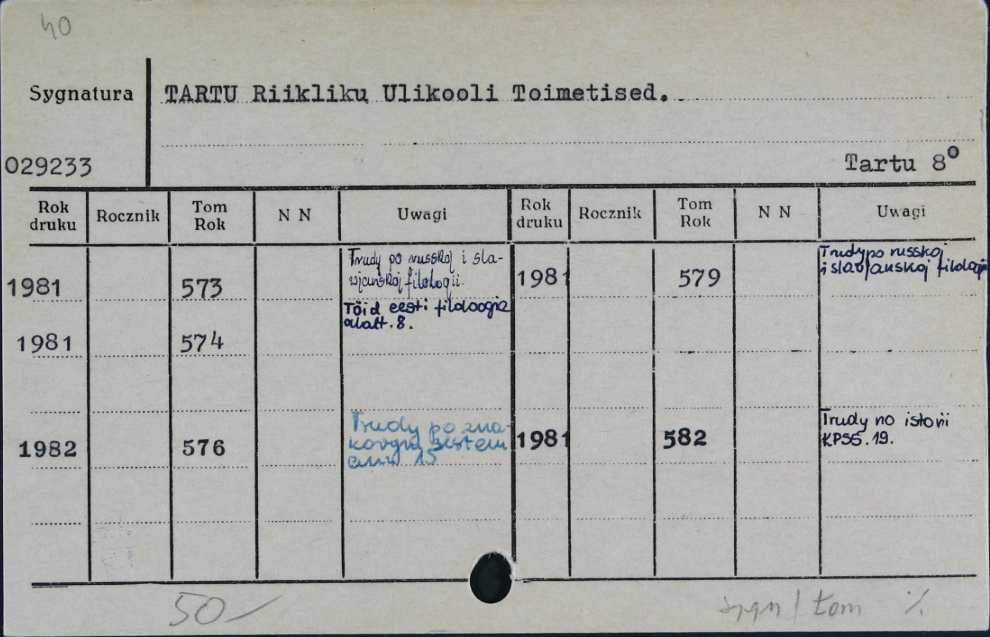 40
Sygnatura TARTU Riikliku Ulikooli Toimetised.
029233 Tartu 8°
Rok druku Rocznik Tom Rok N N Uwagi Rok druku Rocznik Tom Rok N N Uwagi
1981 573 Trudy po russkoj i sla-
vjanskoj filologii.
1981 579 Trudy po russkoj
i slavjanskoj filologii
1981 574 Töid eesti filoloogia
alalt. 8.
1982 576 Trudy po zna-
kovym sistem
am 15
1981 582 Trudy no istorii
KPSS. 19.
50
sygn / tom %